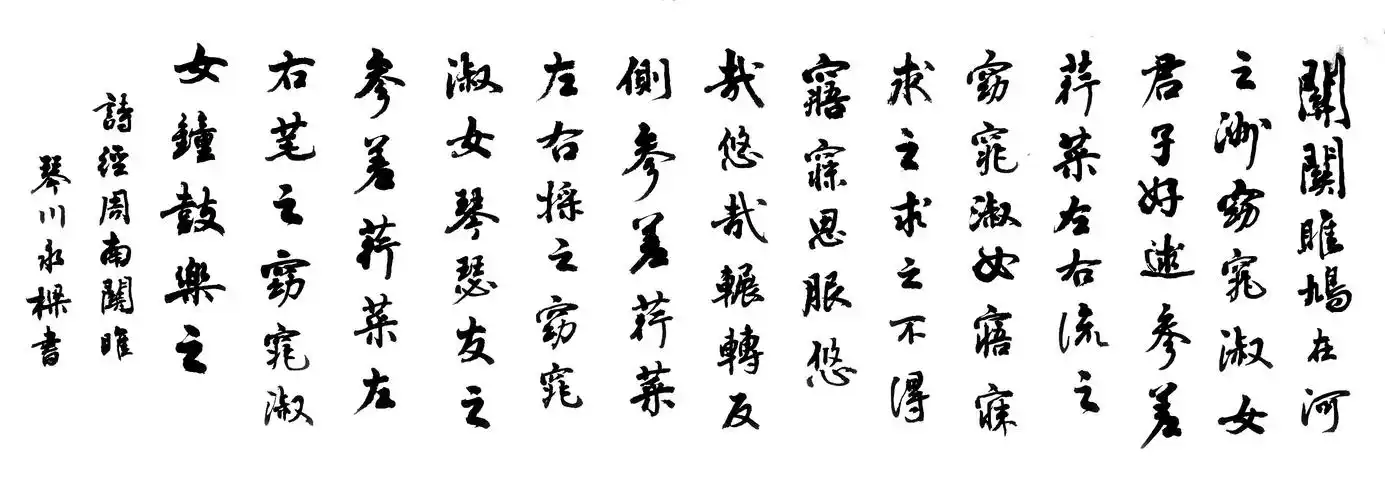 關關雎鳩在河
之洲窈窕淑女
君子好逑參差
荇菜左右流之
窈窕淑女寤寐
求之求之不得
寤寐思服悠
哉悠哉輾轉反
側參差荇菜
左右採之窈窕
淑女琴瑟友之
參差荇菜左
右芼之窈窕淑
女鐘鼓樂之
詩經周南關雎
琴川永樑書